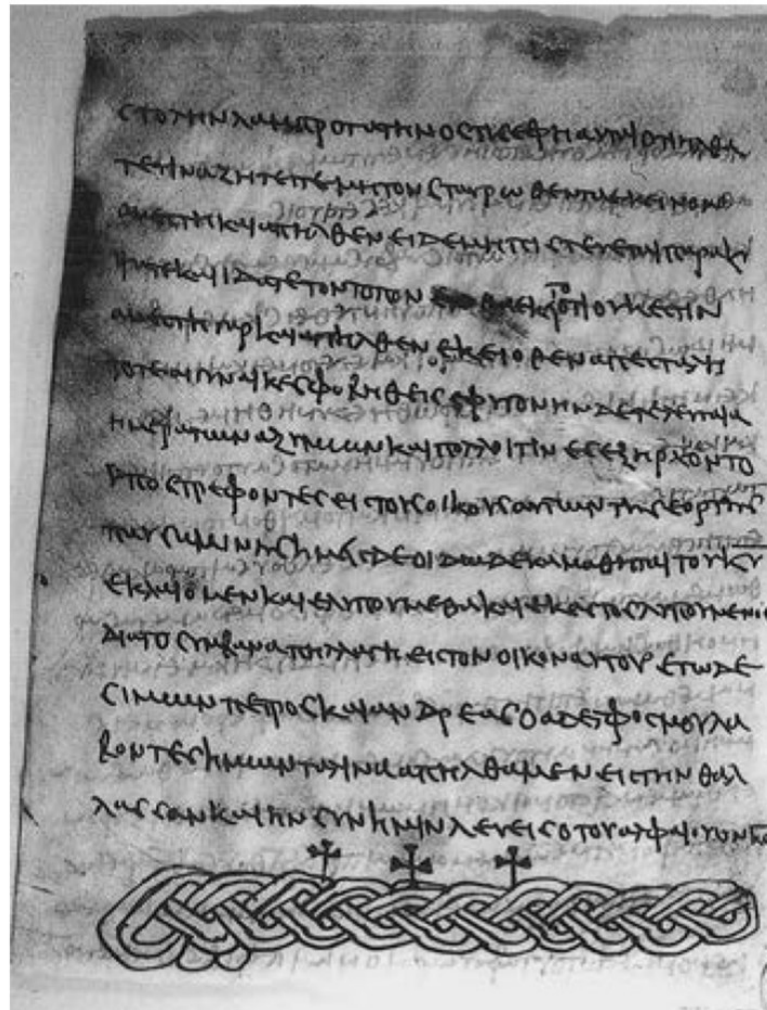 στολην λαμπροτατην οστις εφη αυταις οτι ηλθα
τε τινα ζητειτε μη τον σταυρωθεντα εκεινον
ανεστη και απηλθεν ει δε μη πιστευετε παρακυ
ψατε και ιδατε τον τοπον εκειτο οτι ουκ εστιν
ανεστη γαρ και απηλθεν εκει οθεν απεσταλη
τοτε αι γυναικες φοβηθεις εφυγον ην δε τελευταια
ημερα των αζυμων και πολλοι τινες εξηρχοντο
υποστρεφοντες εις τους οικους αυτων της εορτης
παυσαμενης ημεις δε οι δωδεκα μαθηται του κυ
εκλαιομεν και ελυπουμεθα και εκαστος λυπουμενος
δια το συμβαν απηλλαγη εις τον οικον αυτου εγω δε
σιμων πετρος και ανδρεας ο αδελφος μου λα
βοντες ημων τα λινα απηλθαμεν εις την θαλ
λασσαν και ην συν ημιν λευεις ο του αλφαιου ον κς